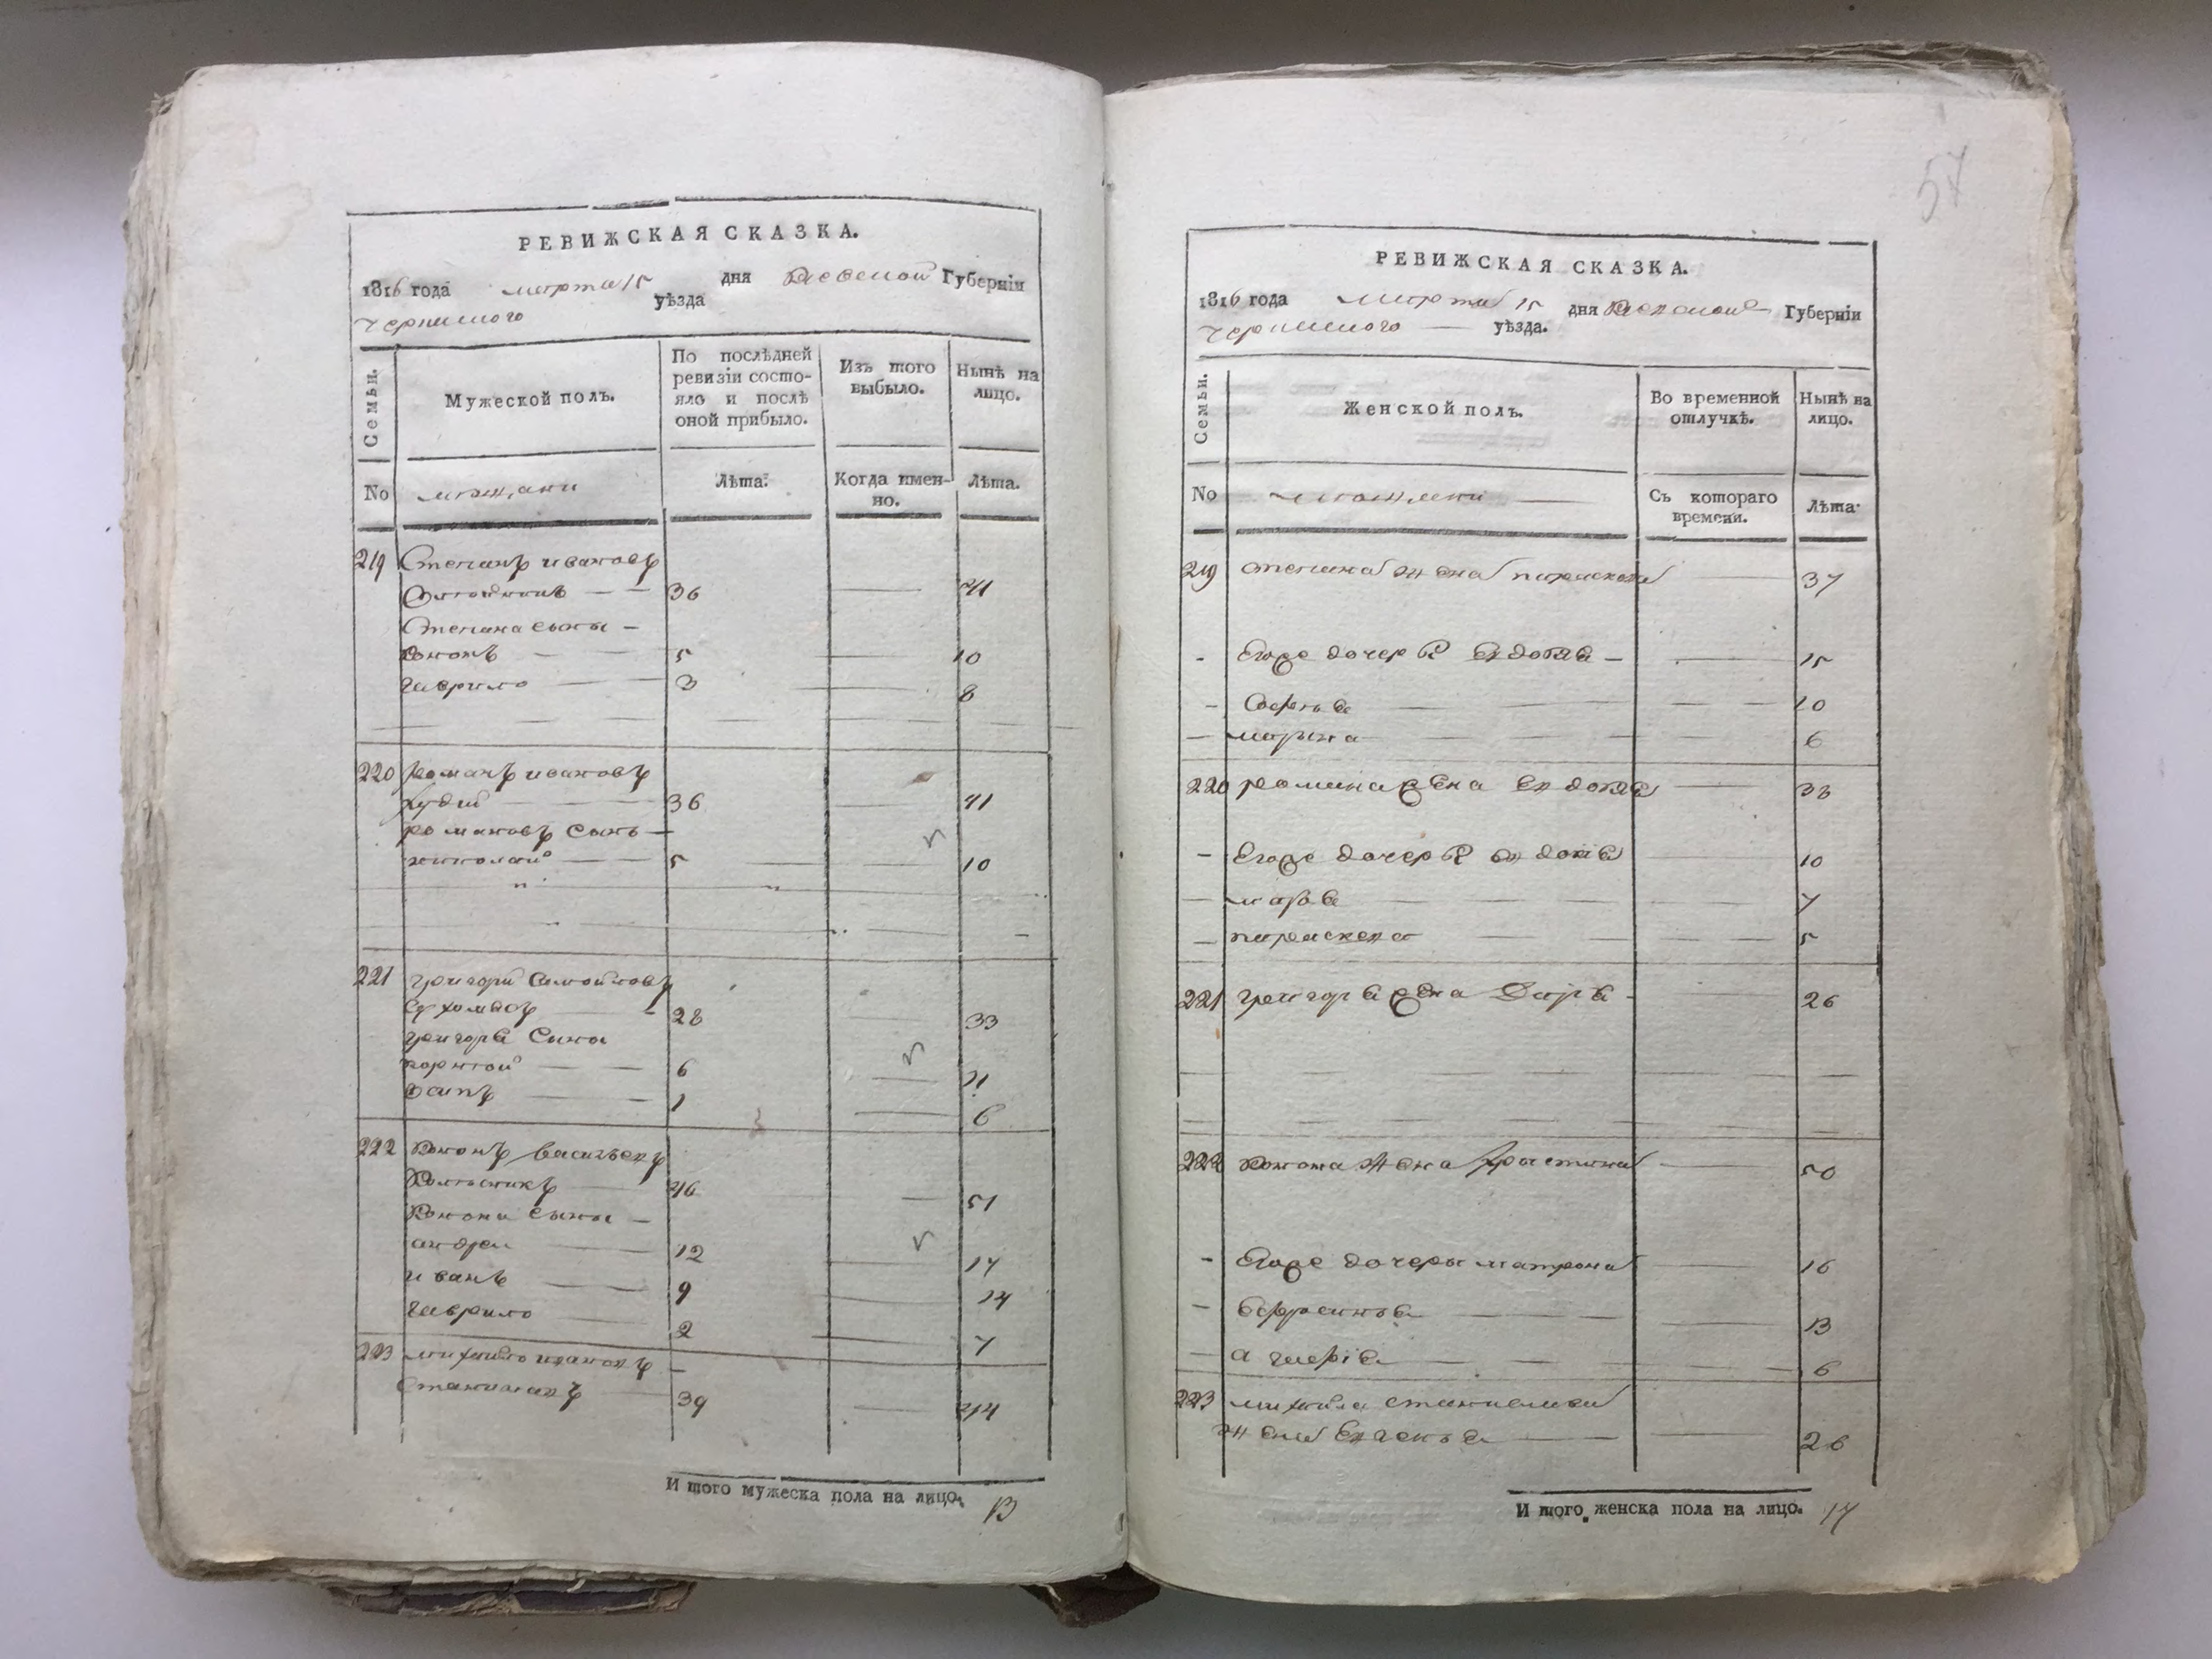 РЕВИЖСКАЯ СКАЗКА.
1816 года марта 15 дня Киевской Губерніи
уѣзда
Мужеской полъ.
Семьи.
По послѣдней
ревизіи состо-
яло и послѣ
оной прибыло.
Изъ того
выбыло.
Нынѣ на
лицо.
No
Лѣта.
Когда имен-
но.
Лѣта.
219 Степанъ Ивановъ
36 41
Степана сыны
Кононъ 5 10
Гаврило 3 8
220 Романъ Ивановъ
Худий 36 41
Романовъ сынъ
Николай 5 10
221 Григорий Самойловъ
28 33
Григорья сыны
Корней 6 11
Осипъ 1 6
222 Кононъ Васильевъ
46 51
Конона сыны
Андрей 12 17
Иванъ 9 14
Гаврило 2 7
223 Михайло Ивановъ
39 44
И того мужеска пола на лицо. 13
57
РЕВИЖСКАЯ СКАЗКА.
1816 года марта 15 дня Киевской Губерніи
уѣзда.
Семьи.
Женской полъ.
Во временной
отлучкѣ.
Нынѣ на
лицо.
No
Съ котораго
времени.
Лѣта
219 Степана жена Параскева 37
Его дочери Евдокія 15
Софья 10
Марина 6
220 Романа жена Евдокія 38
Его дочери Евдокія 10
Марья 7
Параскева 5
221 Григорья жена Дарья 26
222 Конона жена Христина 50
Его дочери Матрона 16
Ефросинья 13
6
223 Михайла
жена 26
И того женска пола на лицо. 14